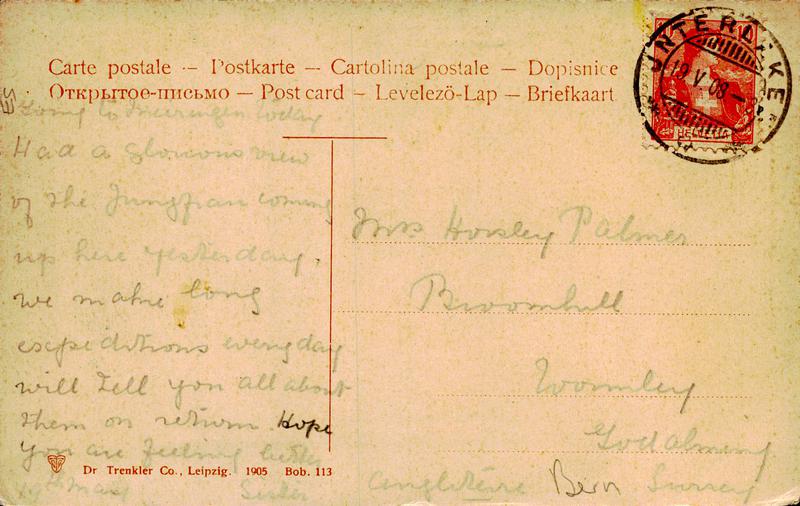 Carte postale — Postkarte — Cartolina postale — Dopisnice
Открытое-письмо — Post card — Levelező-Lap — Briefkaart
INTERLAKEN
19 V 08
HELVETIA
Going to Meiringen today
Had a glorious view
of the Jungfrau coming
up here yesterday.
we make long
expeditions every day
will tell you all about
them on return Hope
you are feeling better
19th May Sister
Mrs Horsley Palmer
Broomhill
Wormley
Godalming
Angleterre Bern Surrey
Dr Trenkler Co., Leipzig. 1905 Bob. 113